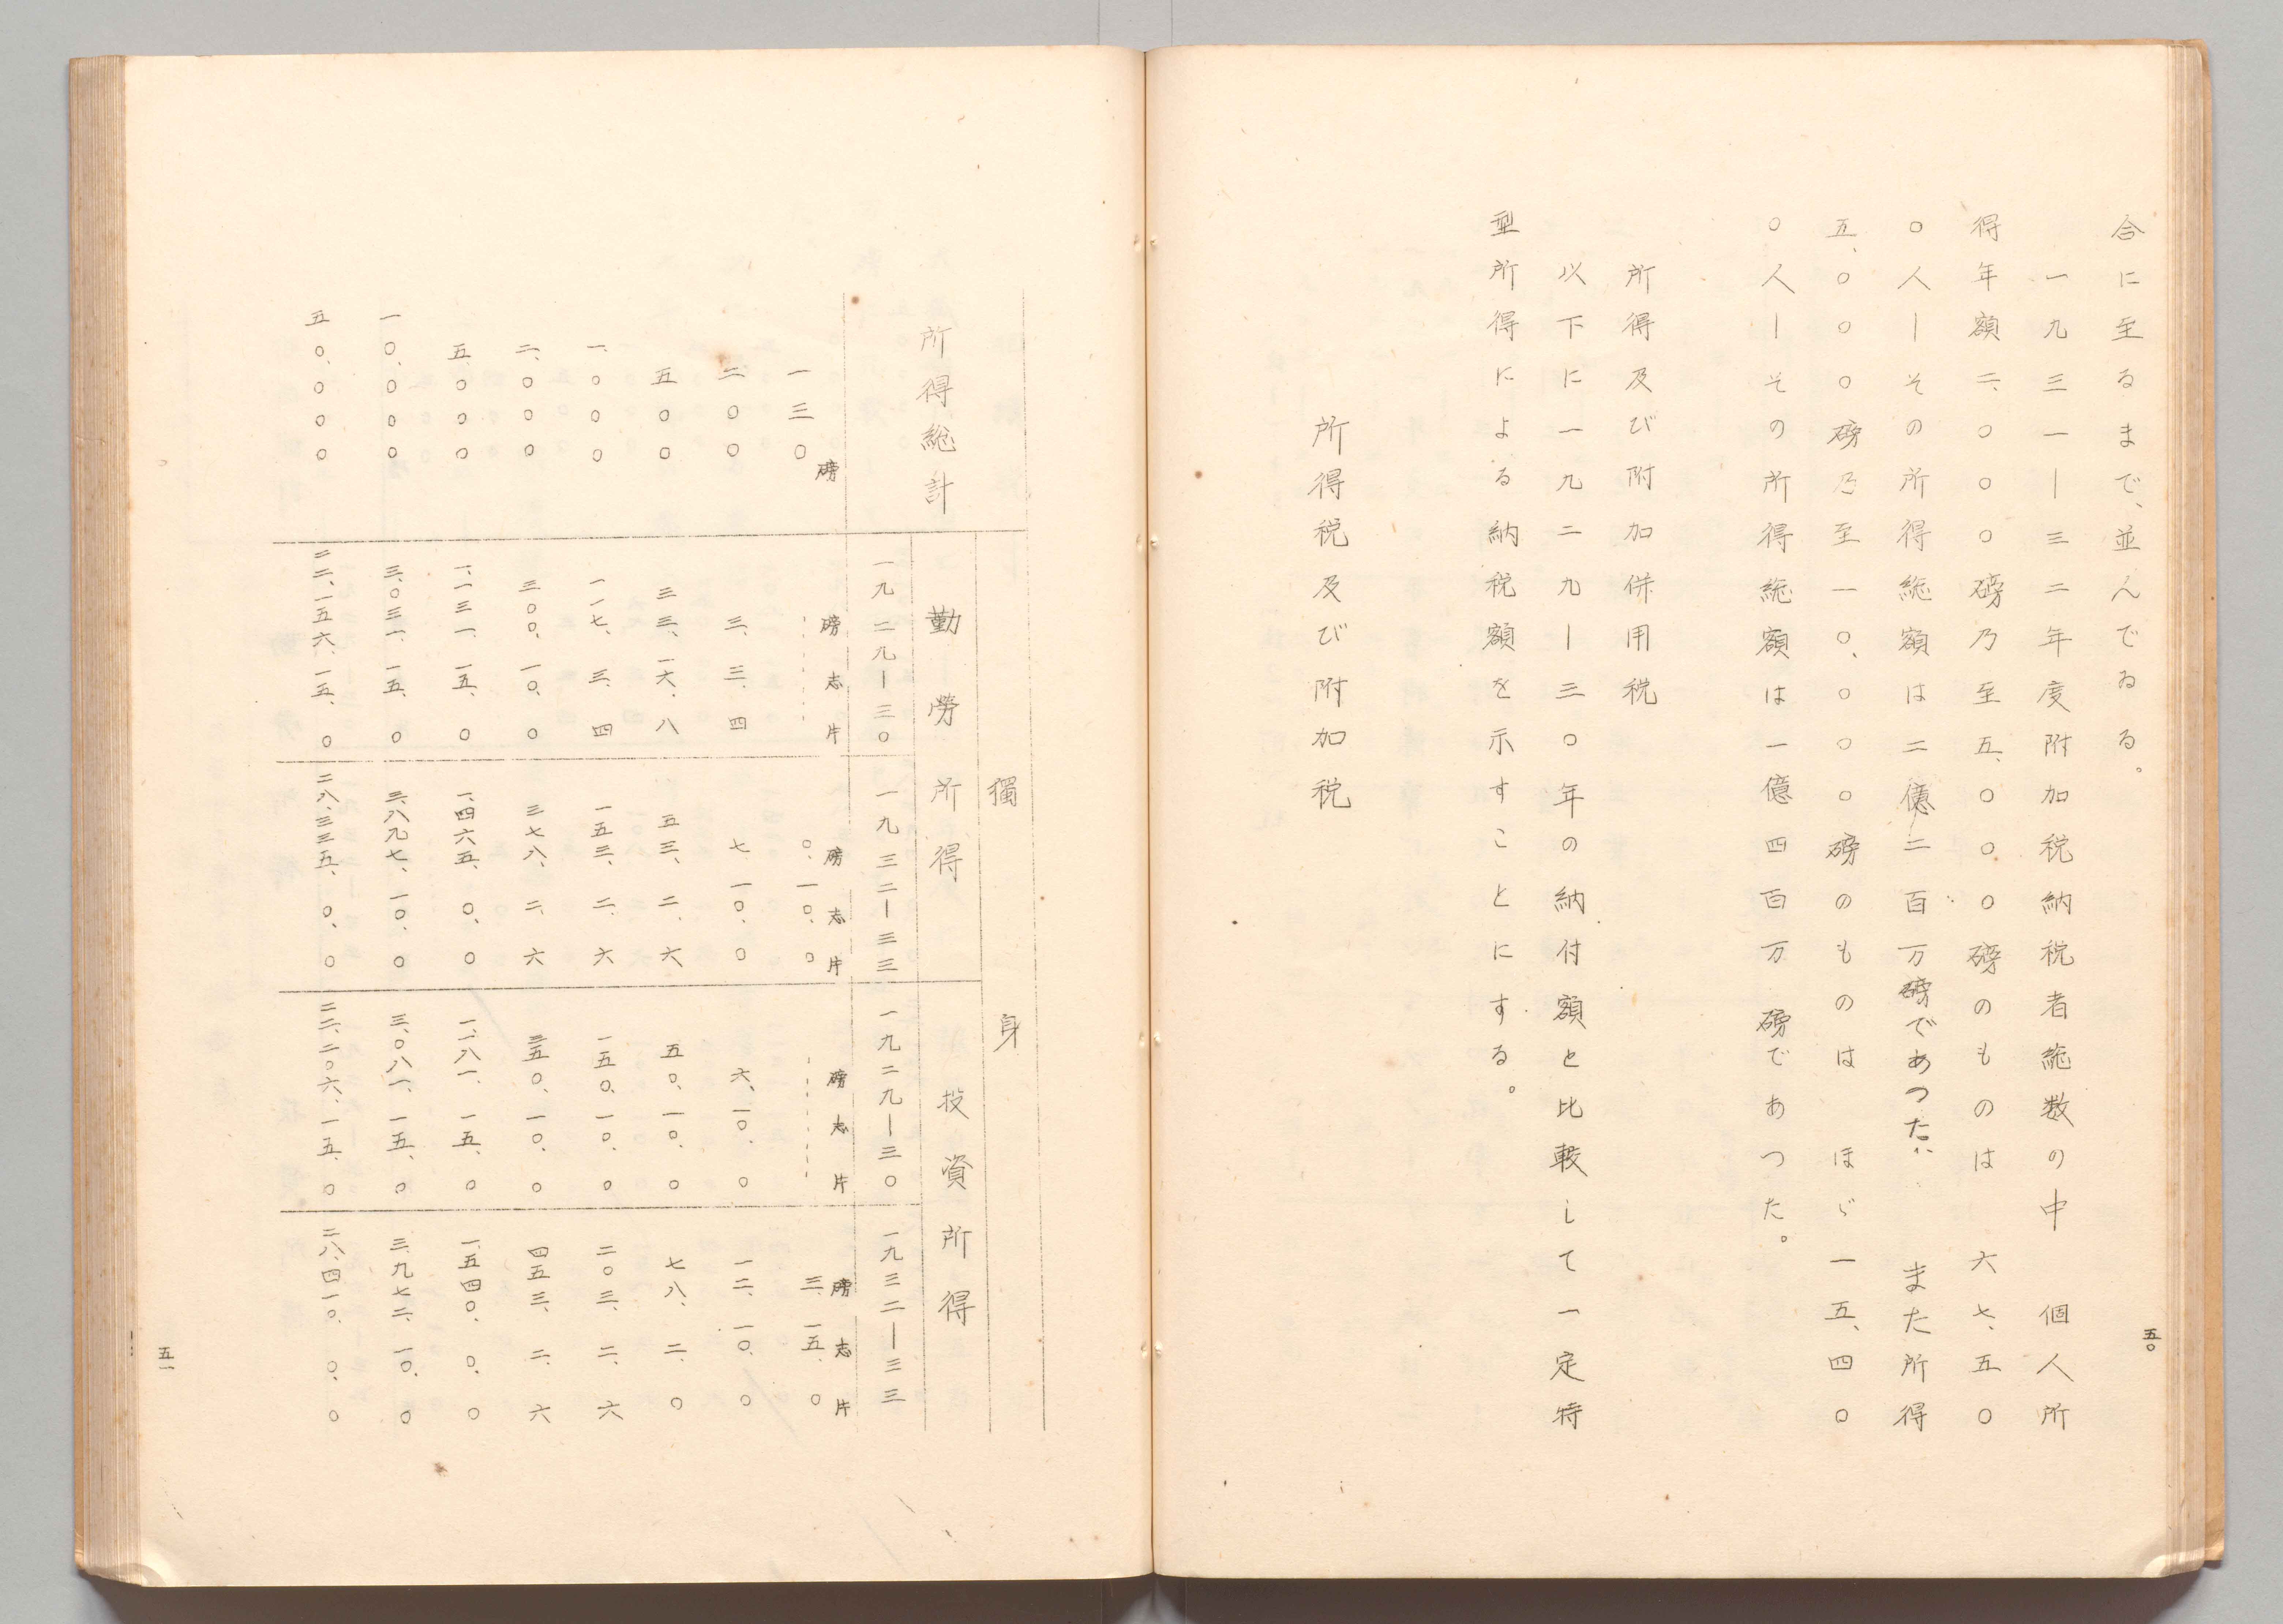 合に至るまで、並んでゐる。
一九三一―三二年度附加税納税者総数の中　個人所
得年額二、〇〇〇磅乃至五、〇〇〇磅のものは　六七、五〇
〇人―その所得総額は二億二百万磅であつた　また所得
五、〇〇〇磅乃至一〇、〇〇〇磅のものは　ほゞ一五、四〇
〇人―その所得総額は一億四百万　磅であつた。
所得及び附加併用税
以下に一九二九―三〇年の納付額と比較して一定特
型所得による納税額を示すことにする。
所得税及び附加税
五〇
獨身
所得総計　勤勞所得　投資所得
一九二九―三〇　一九三二―三三　一九二九―三〇　一九三二―三三
磅　磅　志　片　磅　志　片　磅　志　片　磅　志　片
一三〇　------　〇、一〇、〇　------　三、一五、〇
二〇〇　三、三、四　七　一〇、〇　六、一〇、〇　一二、一〇、〇
五〇〇　三三、一六、八　五三、二、六　五〇、一〇、〇　七八、二、〇
一、〇〇〇　一一七、三、四　一五三、二、六　一五〇、一〇、〇　二〇三、二、六
二、〇〇〇　三〇〇、一〇、〇　三七八、二、六　三五〇、一〇、〇　四五三、二、六
五、〇〇〇　一、一三一、一五、〇　一、四六五、〇、〇　一、一八一、一五、〇　一、五四〇、〇、〇
一〇、〇〇〇　三、〇三一、一五、〇　三、八九七、一〇、〇　三、〇八一、一五、〇　三、九七二、一〇、〇
五〇、〇〇〇　二二、一五六、一五、〇　二八、三三五、〇、〇　二二、二〇六、一五、〇　二八、四一〇、〇、〇
五一